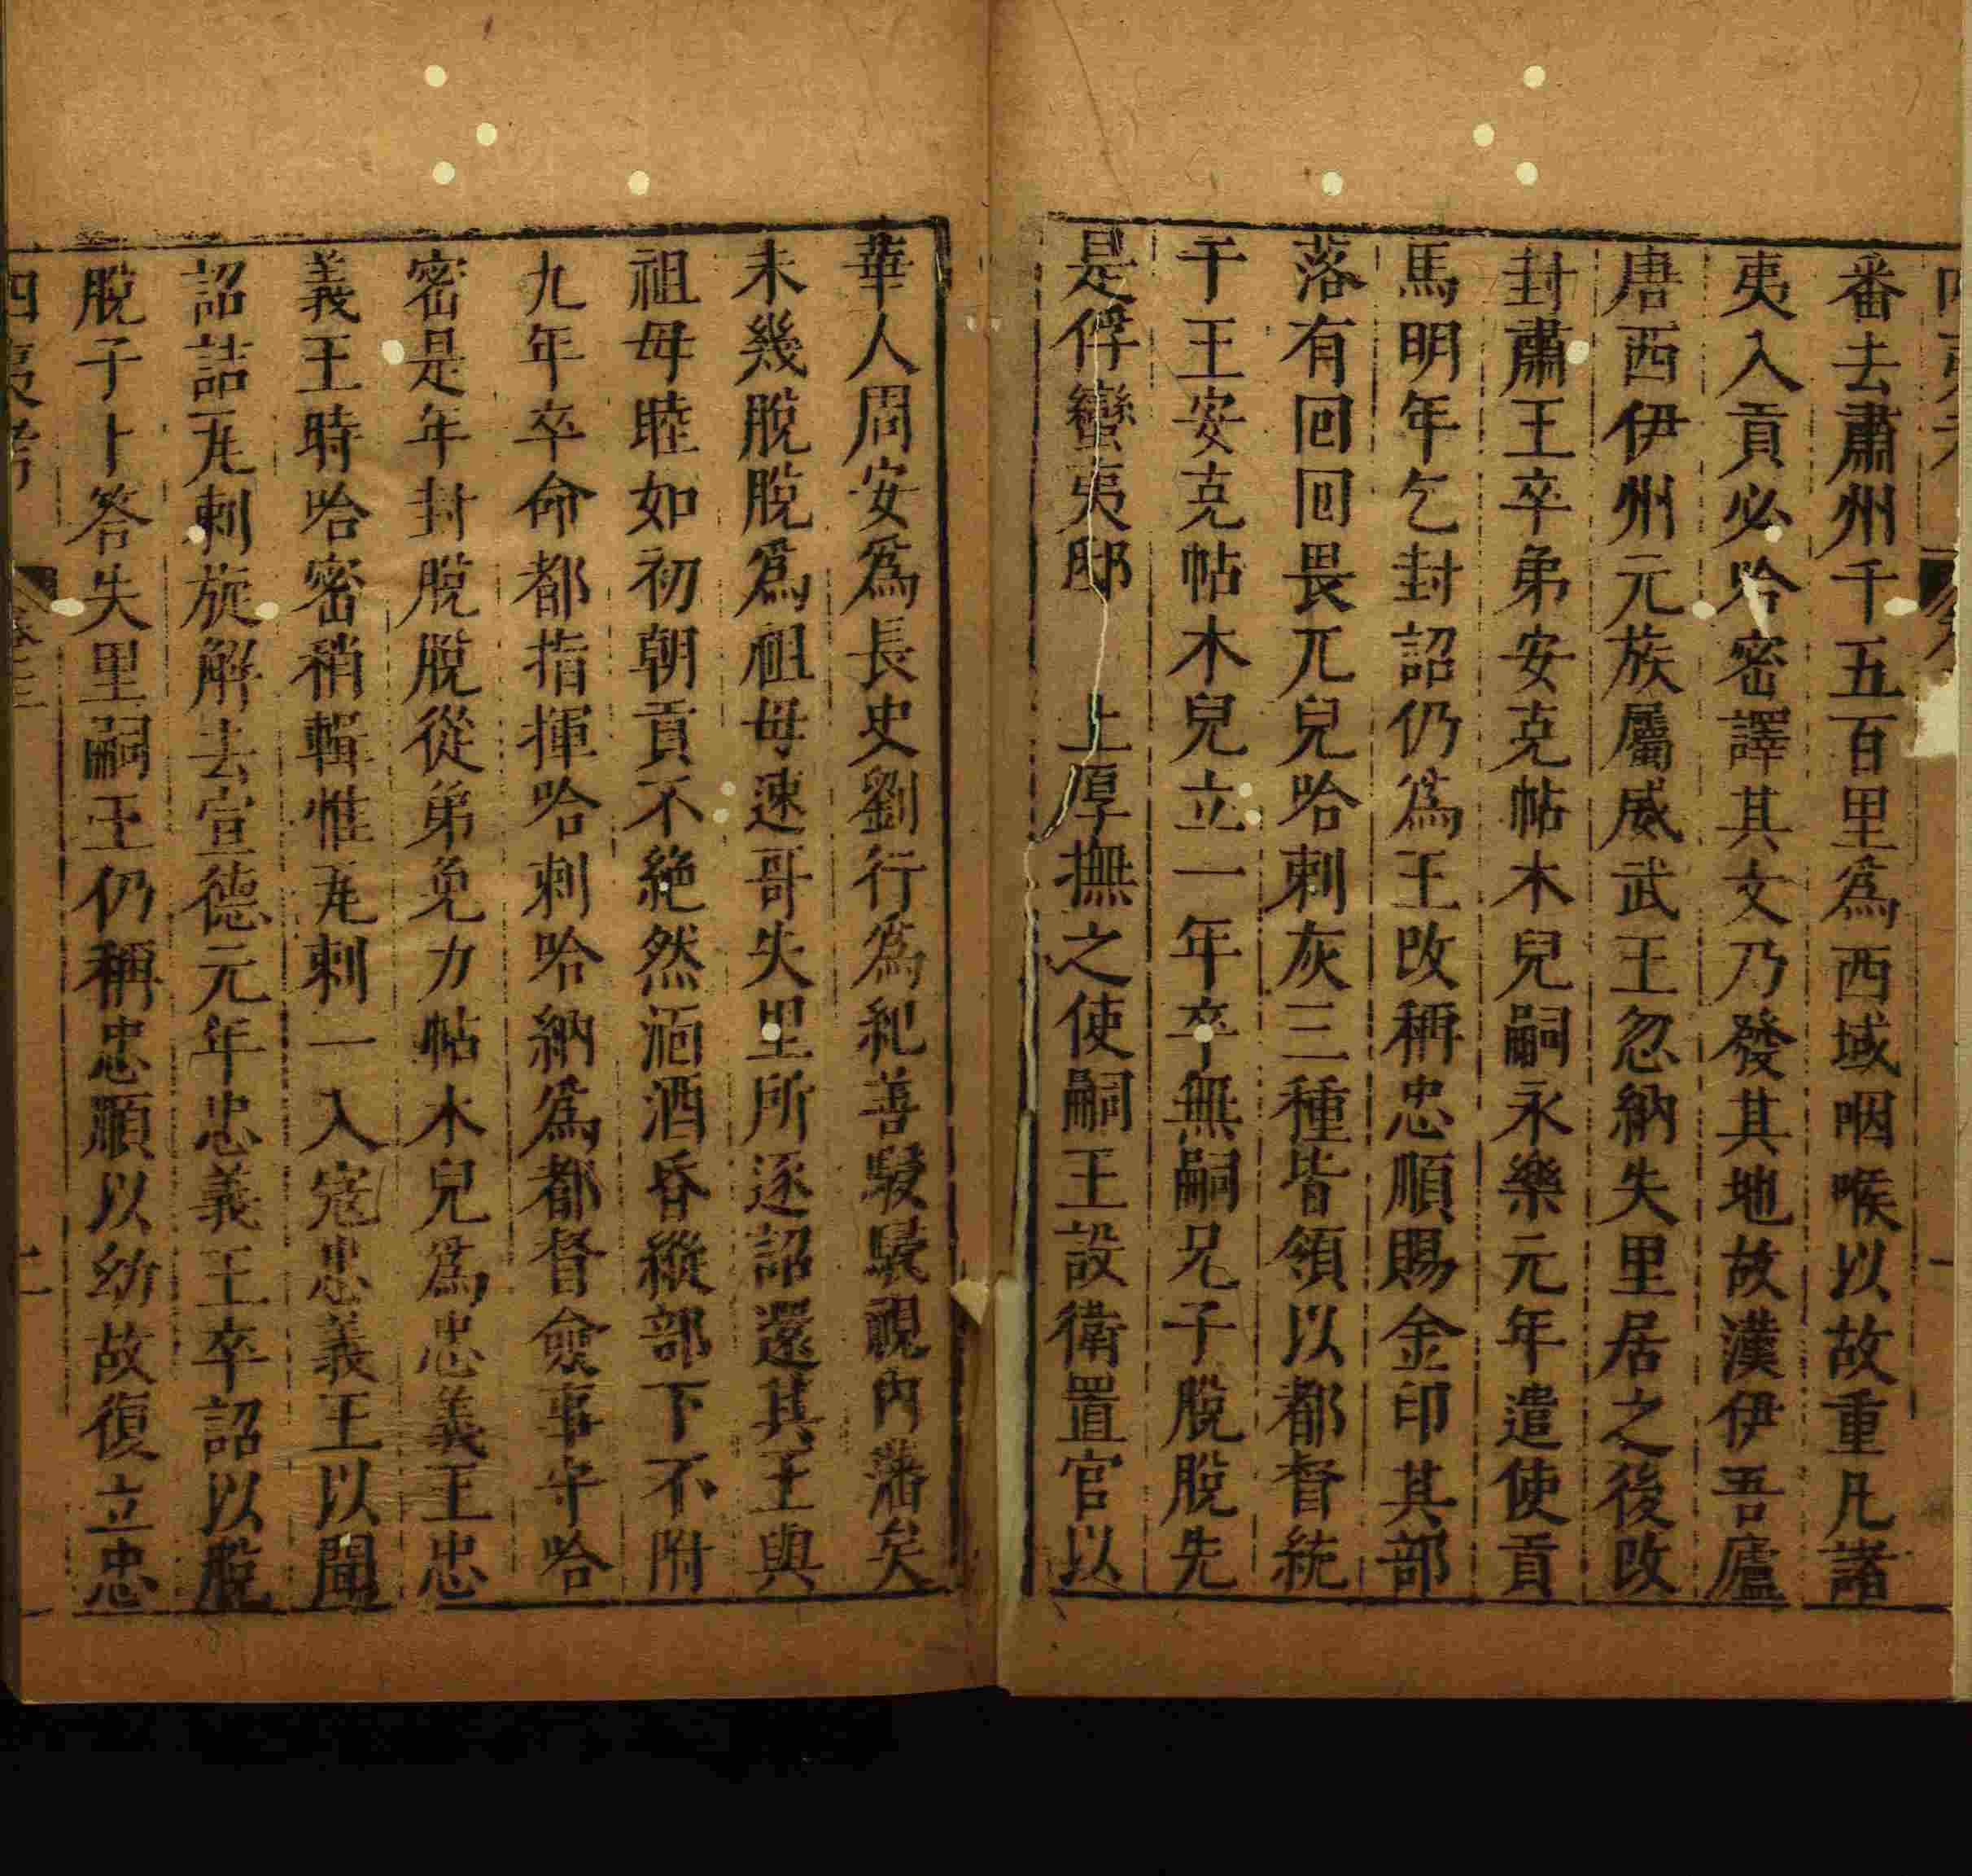 番去肅州千五百里爲西域咽喉以故重凡諸
夷入貢必哈密譯其文乃發其地故漢伊吾廬
唐西伊州元族屬威武王忽納失里居之後改
封肅王卒弟安克帖木兒嗣永樂元年遣使貢
馬明年乞封詔仍爲王改稱忠順賜金印其部
落有回回畏兀兒哈剌灰三種皆領以都督統
于王安克帖木兒立一年卒無嗣兄子脫脫先
是俘蠻夷邸 上厚撫之使嗣王設衛置官以
華人周安爲長史劉行爲紀善駸駸視內藩矣
未幾脫脫爲祖母速哥失里所逐詔還其王與
祖母睦如初朝貢不絶然湎酒昏縱部下不附
九年卒命都指揮哈剌哈納爲都督僉事守哈
密是年封脫脫從弟免力帖木兒爲忠義王忠
義王時哈密稍輯惟瓦剌一入寇忠義王以聞
詔詰瓦剌旋解去宣德元年忠義王卒詔以脫
脫子卜答失里嗣王仍稱忠順以幼故復立忠
四夷考 卷三 二